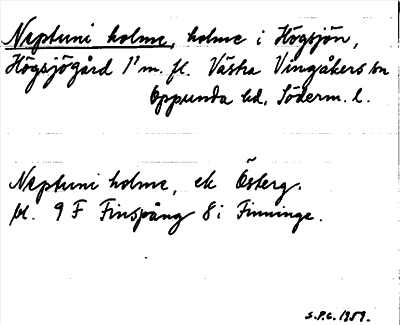 Neptuni holme, holme i Högsjön,
Högsjögård 1' m. fl. Västra Vingåkers sn
Oppunda hd, Söderm. l.
Neptuni holme, ek Österg.
bl. 9 F Finspång 8 i Finninge.
S.P.C. 1959.